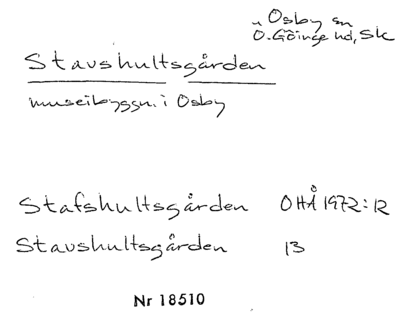 Osby sn
Ö. Göinge hd, Sk
Stavshultsgården
museibyggn. i Osby
Stafshultsgården OHÅ 1972:12
Stavshultsgården 13
Nr 18510